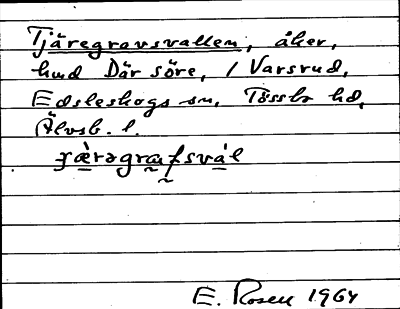 Tjäregravsvallen, åker,
hmd Där söre, / Varsrud,
Edsleskogs sn, Tössbo hd,
Älvsb. l.
E. Rosell 1964